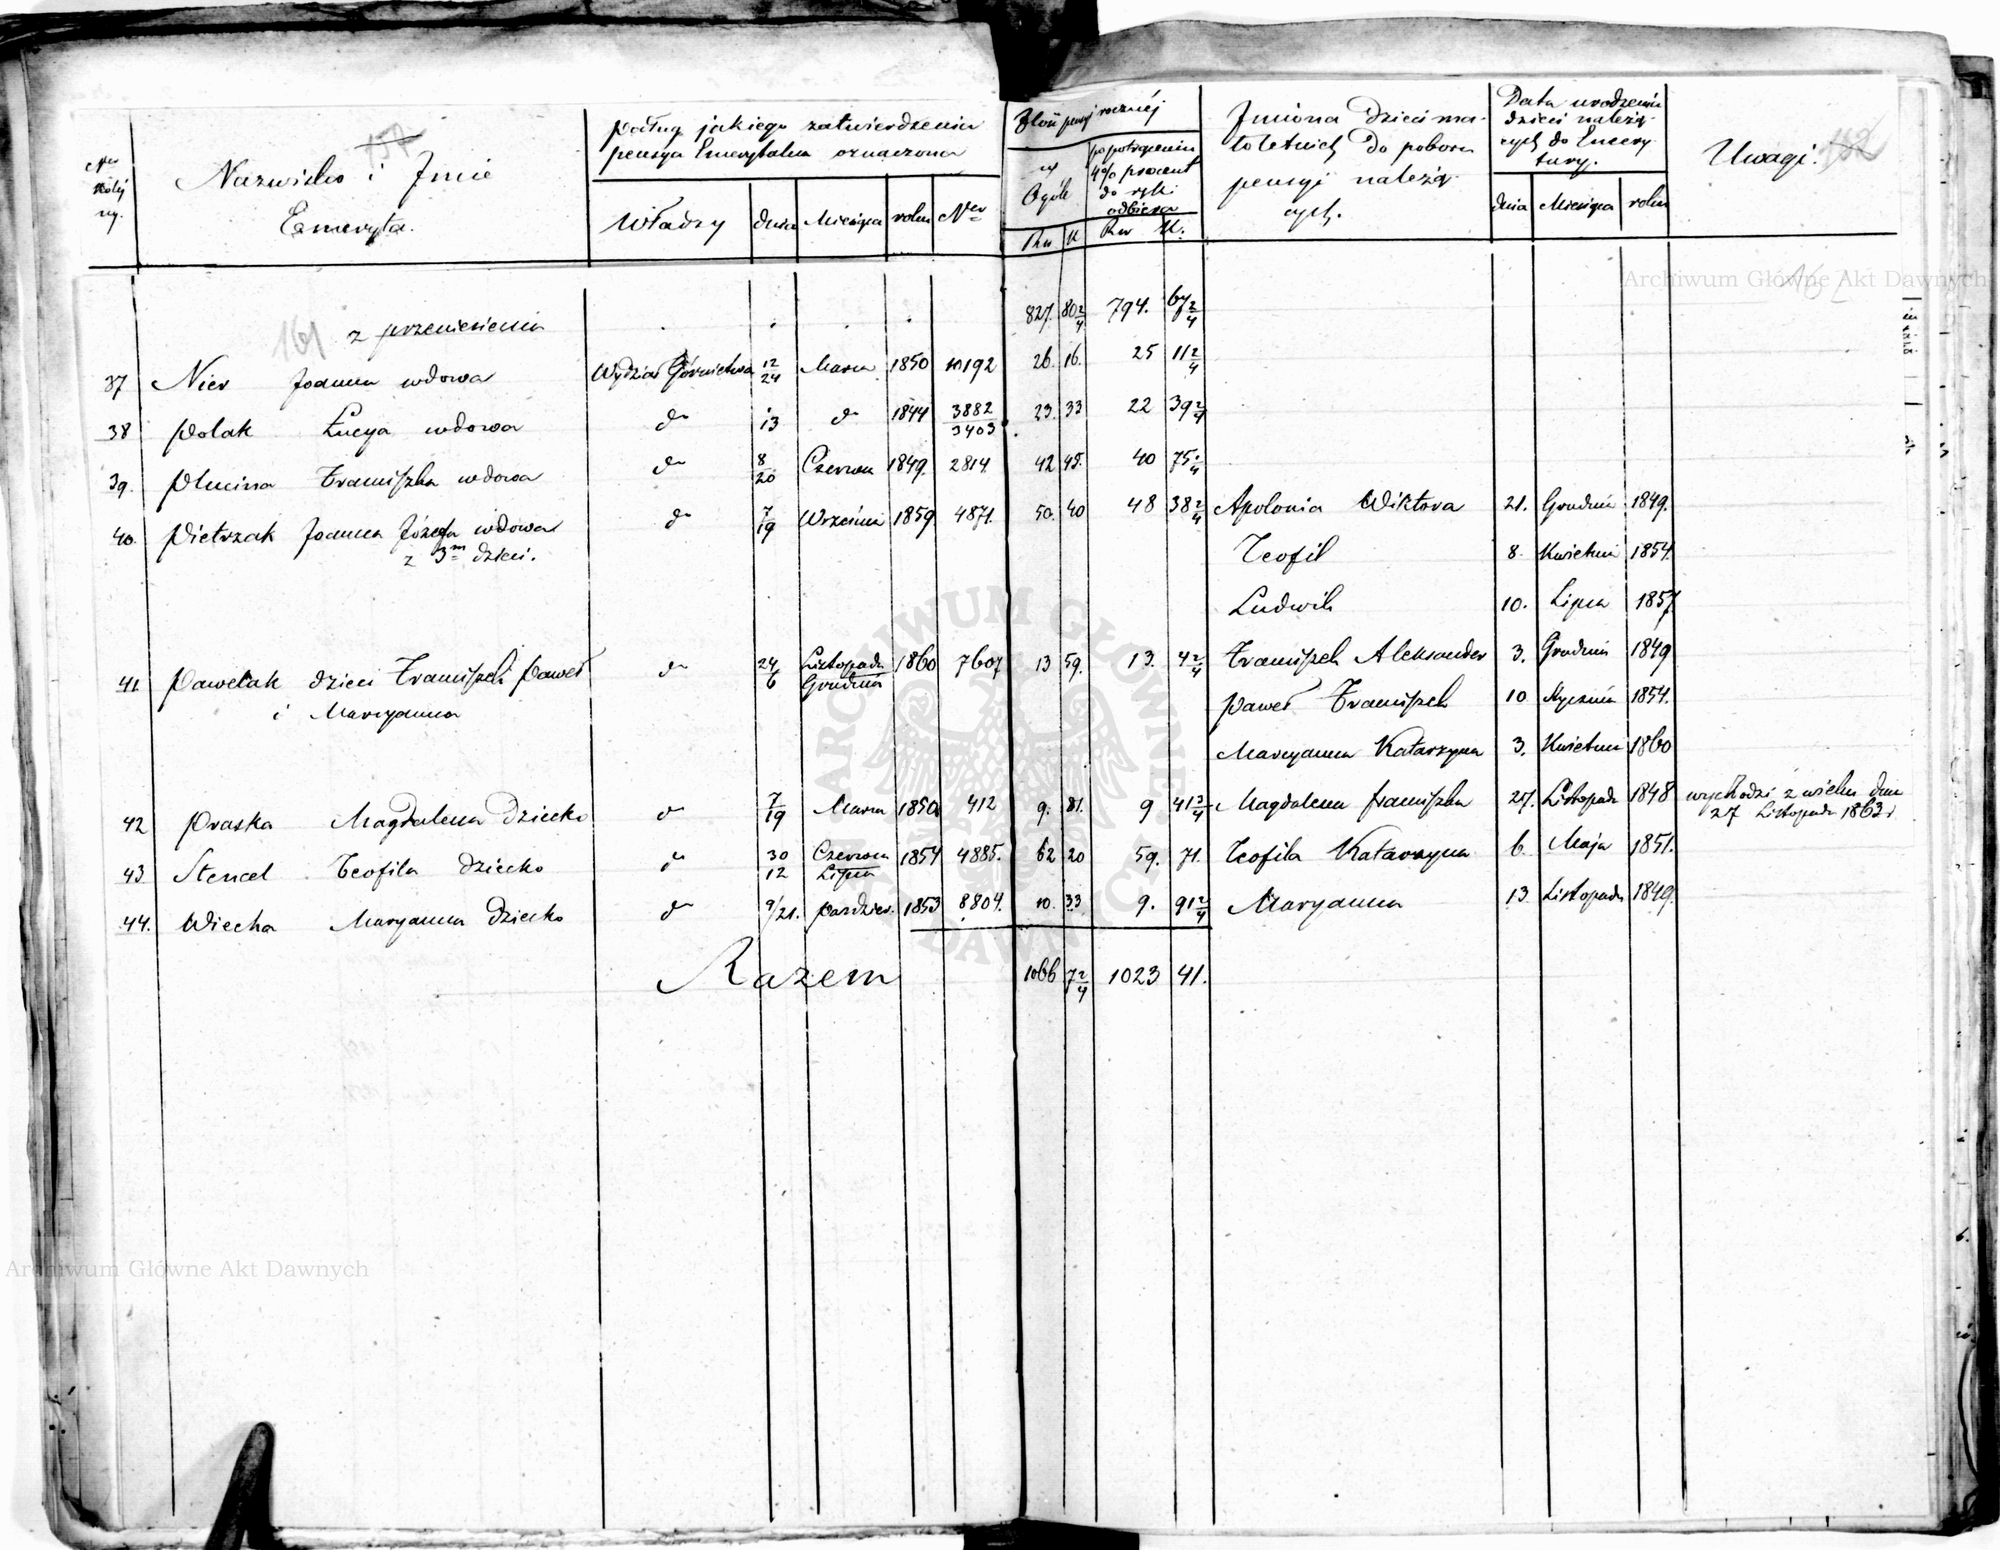 Nazwisko i Imie
Emeryta.
podług jakiego zatwierdzenia
pensya Emerytalna oznaczona
Władzy dnia Miesiąca roku Ner
Ilość pensyi rocznéj
w
Ogóle
po potrąceniu
4% procent
do ręki
odbiera
Rs K Rs K.
Imiona Dzieci ma-
łoletnich do poboru
pensyi należą-
cych.
Data urodzenia
dzieci należą-
cych do Emery-
tury.
dnia Miesiąca roku
Uwagi.
161 z przeniesienia 827. 80 2/4 794. 67 2/4
37 Nier Joanna wdowa Wydział Górnictwa 12/24 Marca 1850 10192 26. 16. 25 11 2/4
38 Polak Łucya wdowa do 1/13 do 1844 3882/3403 23. 33 22 39 2/4
39. Plucina Franciszka wdowa do 8/20 Czerwca 1849. 2814 42 45. 40 75
40. Pietrzak Joanna Józefa wdowa do 7/19 Września 1859 4871. 50. 40 48 38 2/4 Apolonia Wiktora 21. Grudnia 1849.
z 3m dzieci.
Teofil 8. Kwietnia 1854.
Ludwik 10. Lipca 1857
41 Pawelak dzieci Franciszek Paweł do 24/6 Listopada/Grudnia 1860 7607 13 59. 13. 4 2/4 Franciszek Aleksander 3. Grudnia 1849
i Maryanna
Paweł Franciszek 10 Stycznia 1854.
Maryanna Katarzyna 3. Kwietnia 1860
42 Praska Magdalena Dziecko do 7/19 Marca 1850 412 9. 81. 9 41 3/4 Magdalena Franciszka 27. Listopada 1848 wychodzi z wieku dnia
27 Listopada 1863 r
43 Stencel Teofila dziecko do 30/12 Czerwca/Lipca 1854 4885. 62 20 59. 71. Teofila Katarzyna 6. Maja 1851.
44. Wiecha Maryanna Dziecko do 9/21. Pazdzier. 1853 8804. 10. 33 9. 91 2/4 Maryanna 13. Listopada 1849.
Razem 1066 7 2/4 1023 41.
Archiwum Główne Akt Dawnych
Archiwum Główne Akt Dawnych
ARCHIWUM GŁÓWNE AKT DAWNYCH